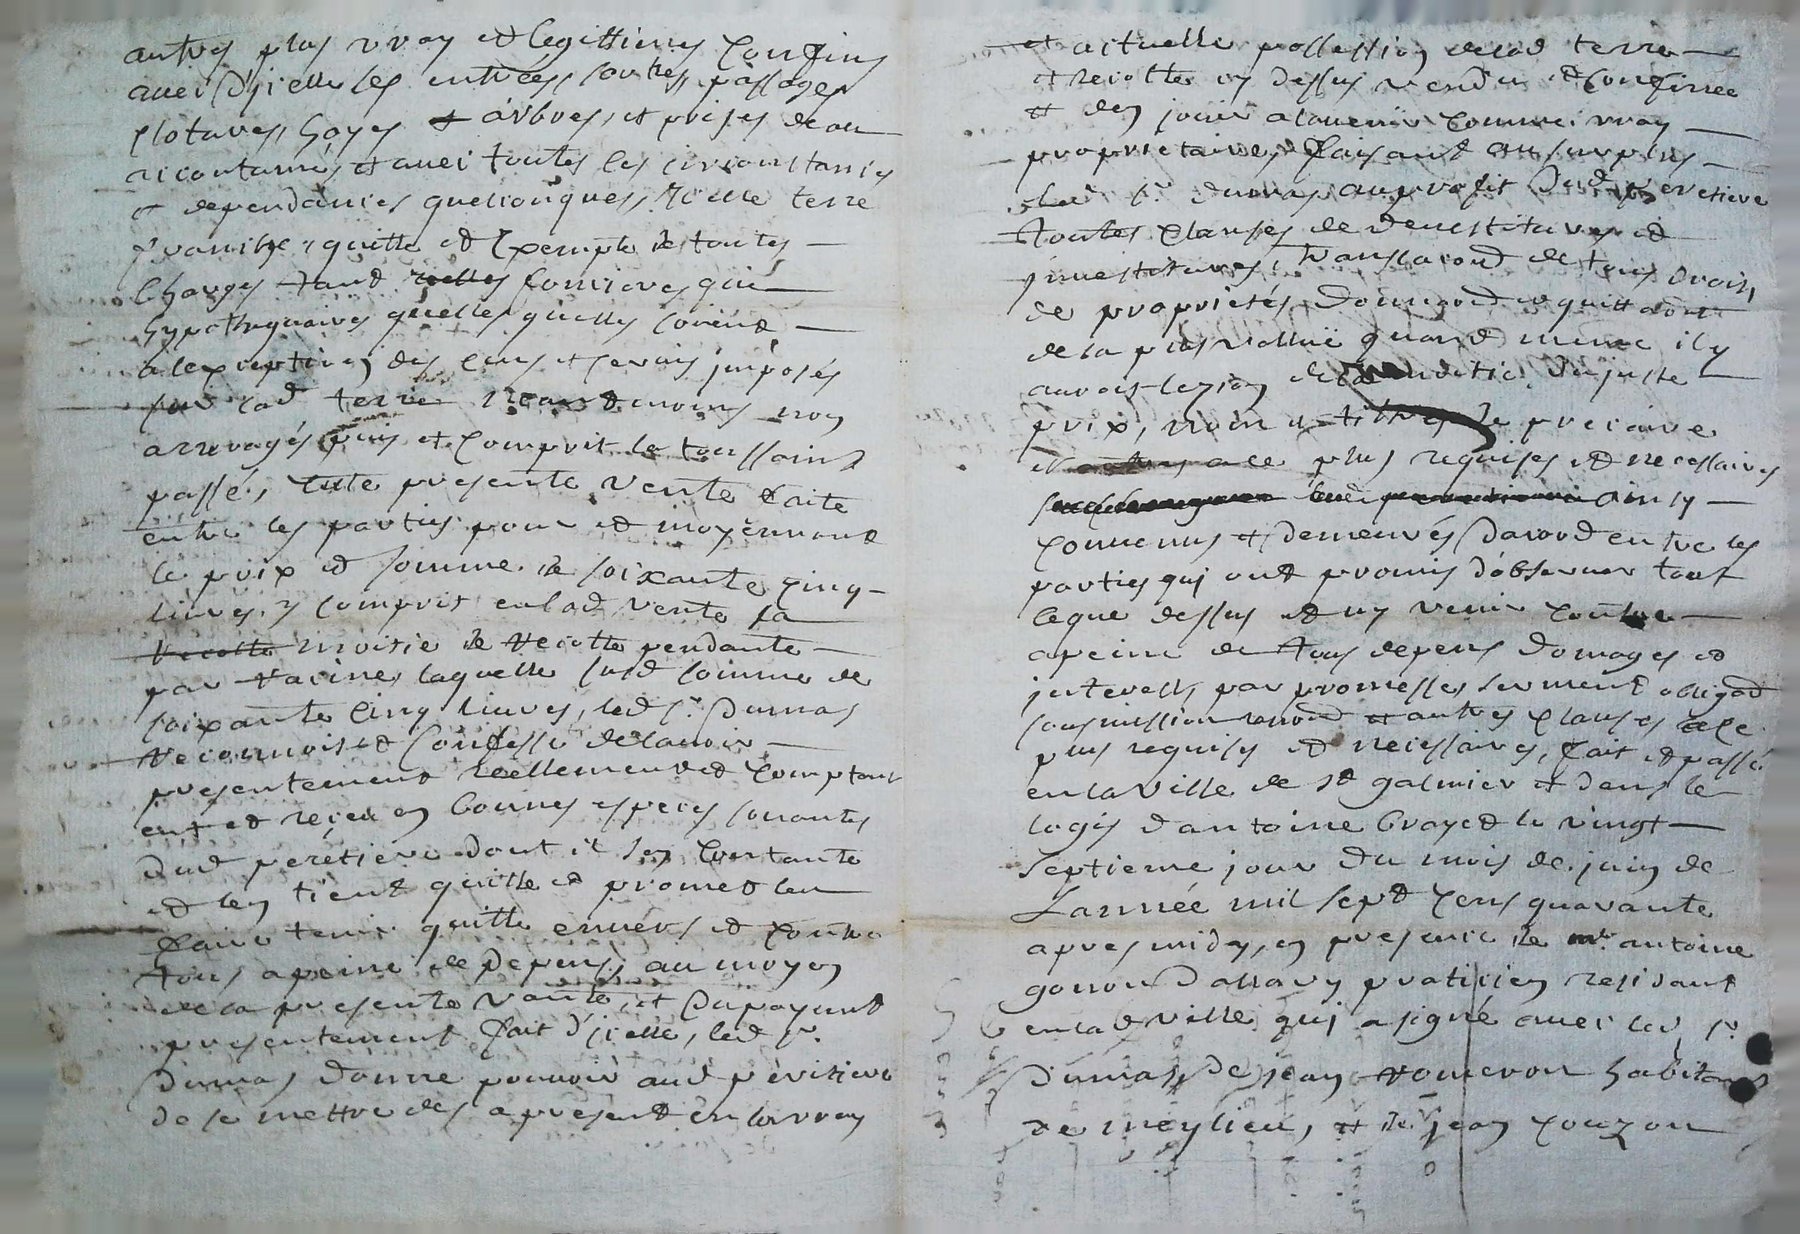 autres plus vray et legittimes confins
avec d'icelle les entrées, sorties, passages
clotures, hayes et arbres, et prises deau
acoutumés et avec toutes les circonstances
et dependances quelconques, icelle terre
franche, quitte et exempte de toutes
charges tand foncieres qui
hypothequaires quelles quelles soient
a lexception des cens et servis imposés
sur lad terre neantmoins non
arreragés puis et comprit la toussaint
passé, cette presente vente faite
entre les parties pour et moyennant
le prix et somme de soixante cinq
livres, y comprit en lad vente la
recolte moitié de recolte pendante
par racines laquelle susd somme de
soixante cinq livres, led sr. Dumas
reconnoist et confesse delavoir
presentement reellement et comptant
eut et reçeu en bonnes especes sonantes
dud peretiere dont il sen contante
et len tient quitte et promet len
faire tenir quitte envers et contre
tous a peine de depens, au moyen
de la presente vante, et du payement
presentement fait d'icelle, led sr.
Dumas donne pouvoir aud peretiere
de se mettre des apresent en la vray
et actuelle possession de lad terre
et recolte cy dessus vendu et confinée
et den jouir alavenir comme vray
proprietaire, faisant au surplus
led sr. dumas au profit dud peretiere
toutes clauses de devestitures et
investitures, translaond de tous droits
de proprietés, donnaond et quittaond
de la plus vallue quand meme il y
auroit lezion du juste
prix, nom et titres de precaire
plus requises et necessaires
ainsy
convenus et demeurés daccord entre les
parties qui ont promis d'observer tout
le que dessus et ny venir contre
a peine de tous depens domages et
interests, par promesses, serment obligaond
sousmission renond et autres clauses a ce
plus requises et necessaires, fait et passé
en la ville de St galmier et dans le
logis d'antoine brayet le vingt
septieme jour du mois de juin de
Lannée mil sept cens quarante
apres midy, en presence de mr antoine
gonon praticien residant
en lad ville qui a signé avec led sr.
Dumas, De jean habitant
de meylieu, et de jean couzon